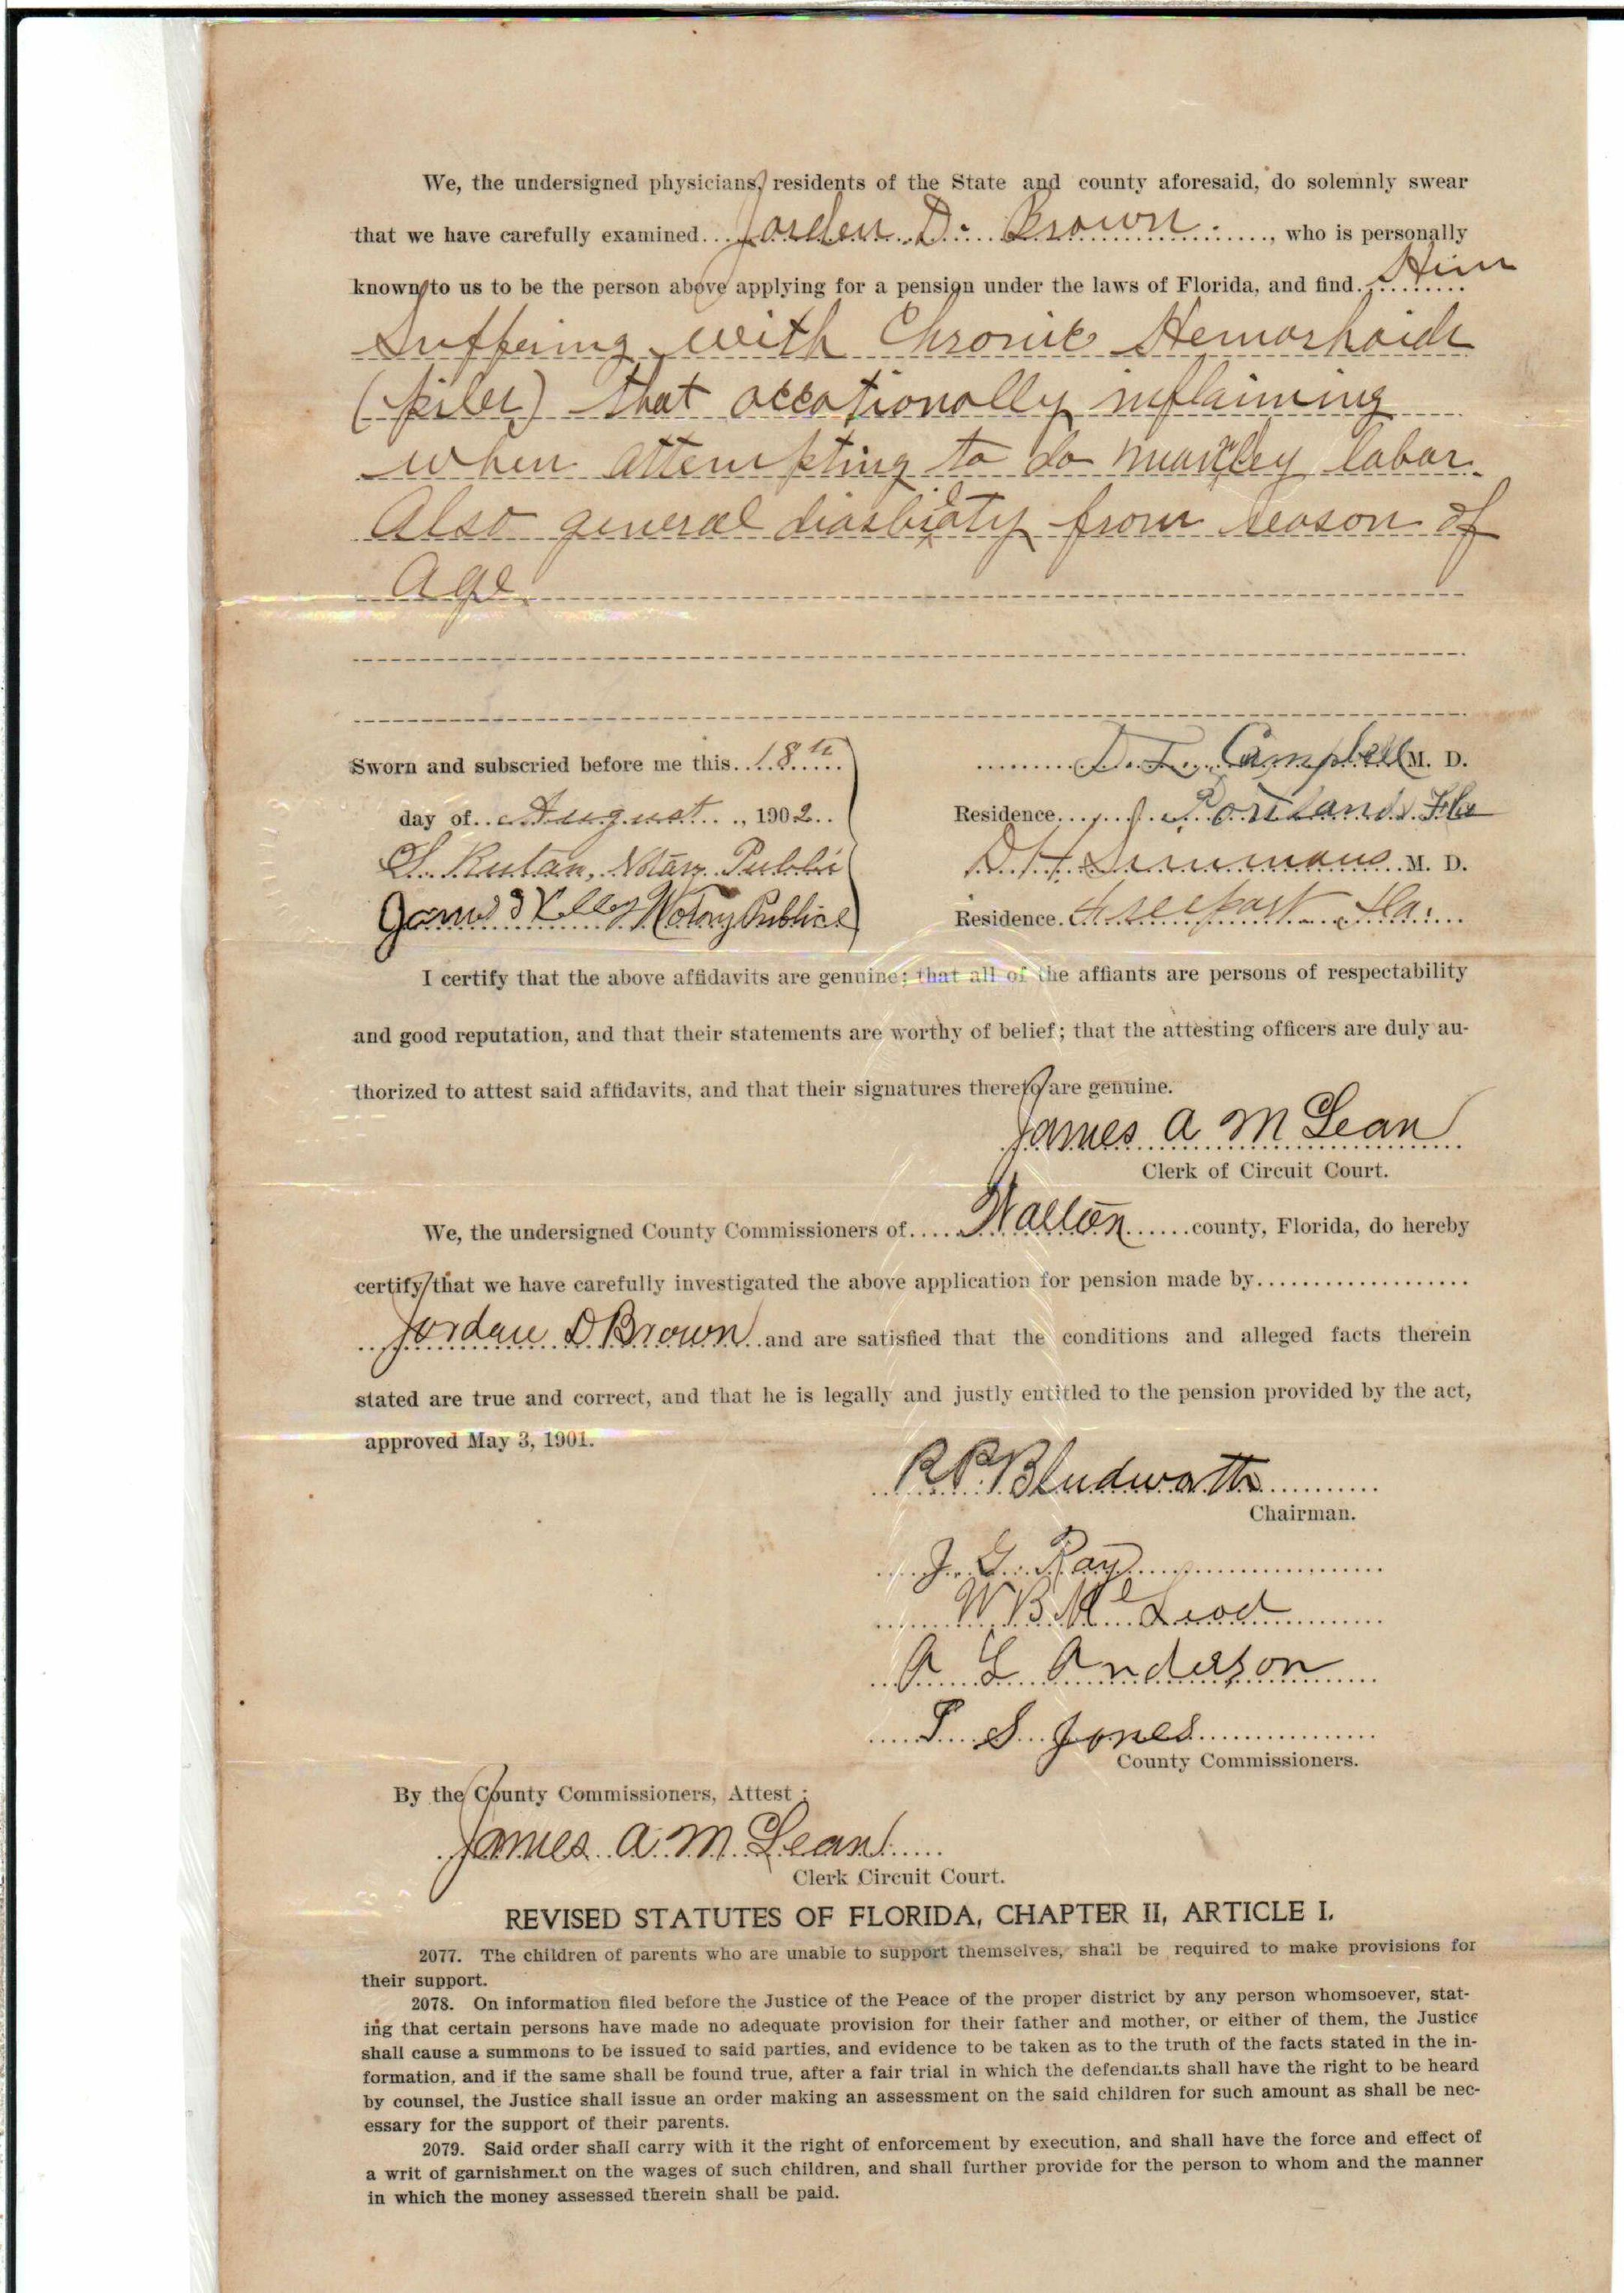 We, the undersigned physicians, residents of the State and county aforesaid, do solemnly swear
that we have carefully examined....Jorden D. Brown........, who is personally
known to us to be the person above applying for a pension under the laws of Florida, and find..Him
Suffering with Chronic Hemorhoids
(piles) that occationally inflaiming
when attempting to do labor.
Also general from reason of
Age
Sworn and subscried before me this..18th....
day of..August..., 1902..
S. Rutan, Notary Public
Notary Public
D. L. Campbell M. D.
Residence....Portland Fla
D. H. Simmons..M. D.
Residence. Freeport Fla....
I certify that the above affidavits are genuine; that all of the affiants are persons of respectability
and good reputation, and that their statements are worthy of belief; that the attesting officers are duly au-
thorized to attest said affidavits, and that their signatures thereto are genuine.
James A McLean
Clerk of Circuit Court.
We, the undersigned County Commissioners of....Walton......county, Florida, do hereby
certify that we have carefully investigated the above application for pension made by...................
...Jordan D Brown..and are satisfied that the conditions and alleged facts therein
stated are true and correct, and that he is legally and justly entitled to the pension provided by the act,
approved May 3, 1901.
R P. Bludworth..........
Chairman.
J. G. Ray
W B McLeod
A L Anderson
S Jones
County Commissioners.
By the County Commissioners, Attest :
James A. McLean
Clerk Circuit Court.
REVISED STATUTES OF FLORIDA, CHAPTER II, ARTICLE I.
2077. The children of parents who are unable to support themselves, shall be required to make provisions for
their support.
2078. On information filed before the Justice of the Peace of the proper district by any person whomsoever, stat-
ing that certain persons have made no adequate provision for their father and mother, or either of them, the Justice
shall cause a summons to be issued to said parties, and evidence to be taken as to the truth of the facts stated in the in-
formation, and if the same shall be found true, after a fair trial in which the defendants shall have the right to be heard
by counsel, the Justice shall issue an order making an assessment on the said children for such amount as shall be nec-
essary for the support of their parents.
2079. Said order shall carry with it the right of enforcement by execution, and shall have the force and effect of
a writ of garnishment on the wages of such children, and shall further provide for the person to whom and the manner
in which the money assessed therein shall be paid.